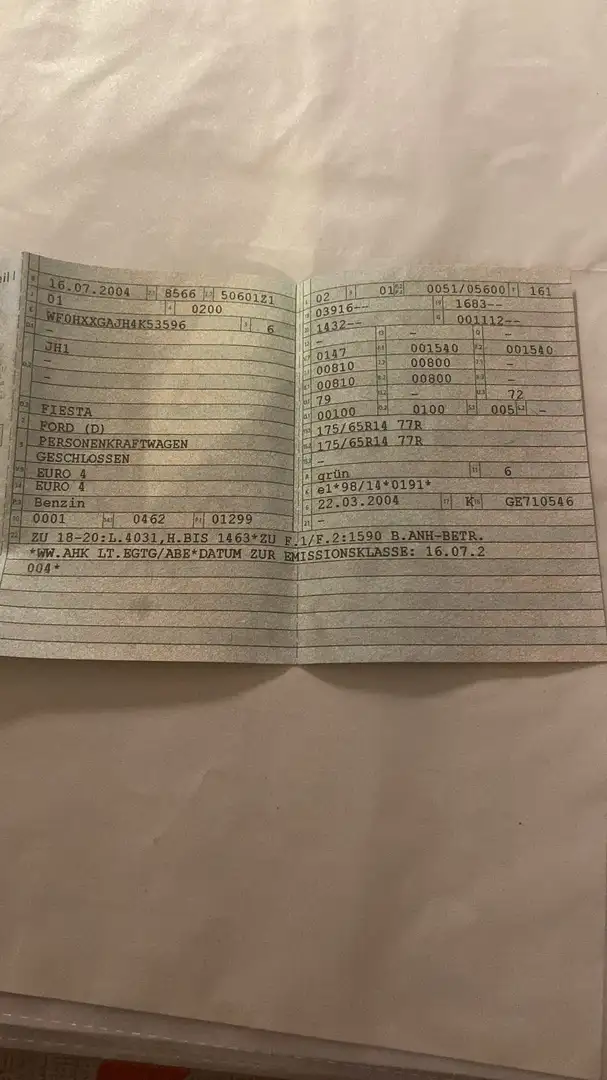 16.07.2004 8566 50601Z1
01 0200
WF0HXXGAJH4K53596 6
-
JH1
-
-
FIESTA
FORD (D)
PERSONENKRAFTWAGEN
GESCHLOSSEN
EURO 4
EURO 4
Benzin
0001 0462 01299
02 01 0051/05600 161
03916-- 1683--
1432-- 001112--
- - -
0147 001540 001540
00810 00800 -
00810 00800 -
79 - 72
00100 0100 005 -
175/65R14 77R
175/65R14 77R
-
grün 6
e1*98/14*0191*
22.03.2004 K GE710546
-
ZU 18-20:L.4031,H.BIS 1463*ZU F.1/F.2:1590 B.ANH-BETR.
*WW.AHK LT.EGTG/ABE*DATUM ZUR EMISSIONSKLASSE: 16.07.2
004*